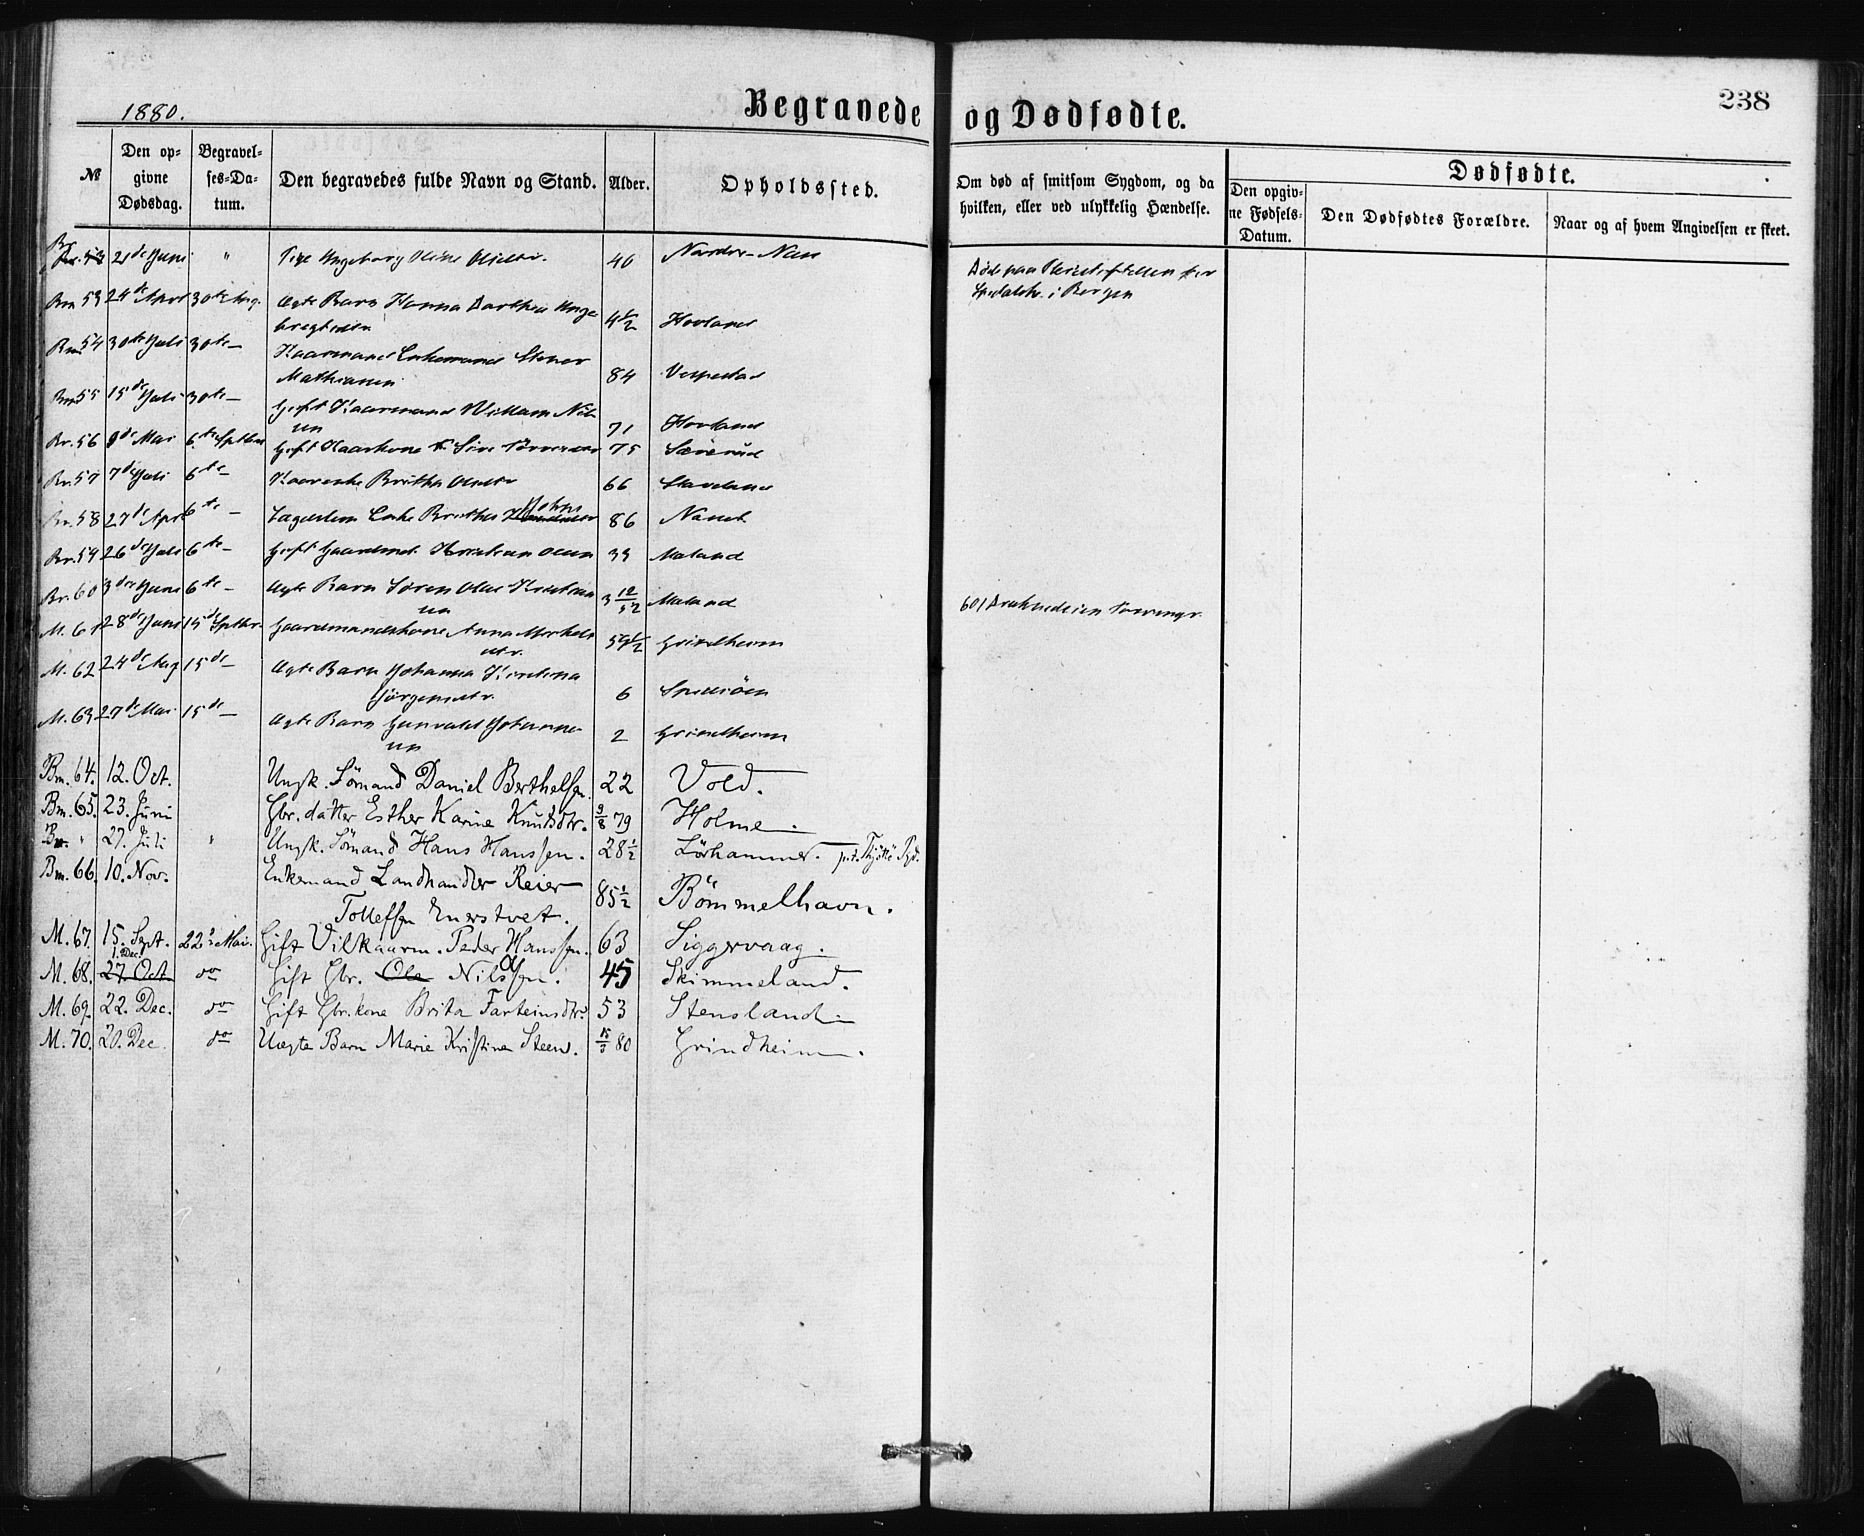 1880.
Begravede og Dødfødte.
238
№
Den opgivne Dødsdag.
Begravelses-Datum.
Den begravedes fulde Navn og Stand.
Alder.
Opholdssted.
Om død af smitsom Sygdom, og da hvilken, eller ved ulykkelig Hændelse.
Dødfødte.
Den opgivne Fødsels-Datum.
Den Dødfødtes Forældre.
Naar og af hvem Angivelsen er skeet.
21de Juni " Pige Ingeborg Olsdtr. 40
Død paa
i Bergen
Bm 53 24de April 30te Aug. Ægte Barn Hanna Dorthea Inge
bregtsen 4½ Hovland
Bm. 54 30te Juli 30te – Kaarmand Enkemand Stener
Mathiasen 84 Vespestad
Bm 55 15de Juli 30te – Gift Kaarmand Willum Nil
sen 71 Hovland
Br. 56 9de Mai 6te Septbr Gift Kaarkone Siri 75
Br. 57 7de Juli 6te – Britha Olsdtr 66
Br. 58 27de April 6te – Enke Britha Johns 86
Br. 59 26de Juli 6te – Gift Gaardmd. Kristian Olsen 33 Meland
Br. 60 3die Juni 6te – Ægte Barn Søren Olai Kristian
sen 3 12/52 Meland
M. 61 28de Juni 15de Septbr. Gaardmandskone Anna
dtr. 59½ Grindheim
M. 62 24de Aug 15de – Ægte Barn Johanna Kirstina
Jörgensdtr. 6
M. 63 27de Mai 15de – Ægte Barn Gunvald Johanne
sen 2 Grindheim
Bm. 64. 12. Oct. Ungk. Sömand Daniel Berthelsen. 22 Vold.
Bm. 65. 23. Juni Gbr. datter Esther Karine Knutsdtr. 9/8 79 Holme.
Bm. " 27. Juli " Ungk. Sömand Hans Hanssen. 28½ Lörhammer. p.t. Thjøttö Pgd.
Bm. 66. 10. Nov. Enkemand Landhandler Reier
Tollefsen Enerstvet. 85½ Bömmelhavn.
M. 67. 15. Sept. 22de Mai. Gift Vilkaarm. Peder Hanssen. 63 Siggervaag.
1. Dec.
M. 68. 27. Oct do Gift Gbr. Ole Nils Olsen. 45 Skimmeland.
M. 69. 22. Dec. do Gift Gbr.kone Brita Farteinsdtr. 53 Stensland.
M. 70. 20. Dec. do Uægte Barn Marie Kristine Steen. 15/3 80 Grindheim.